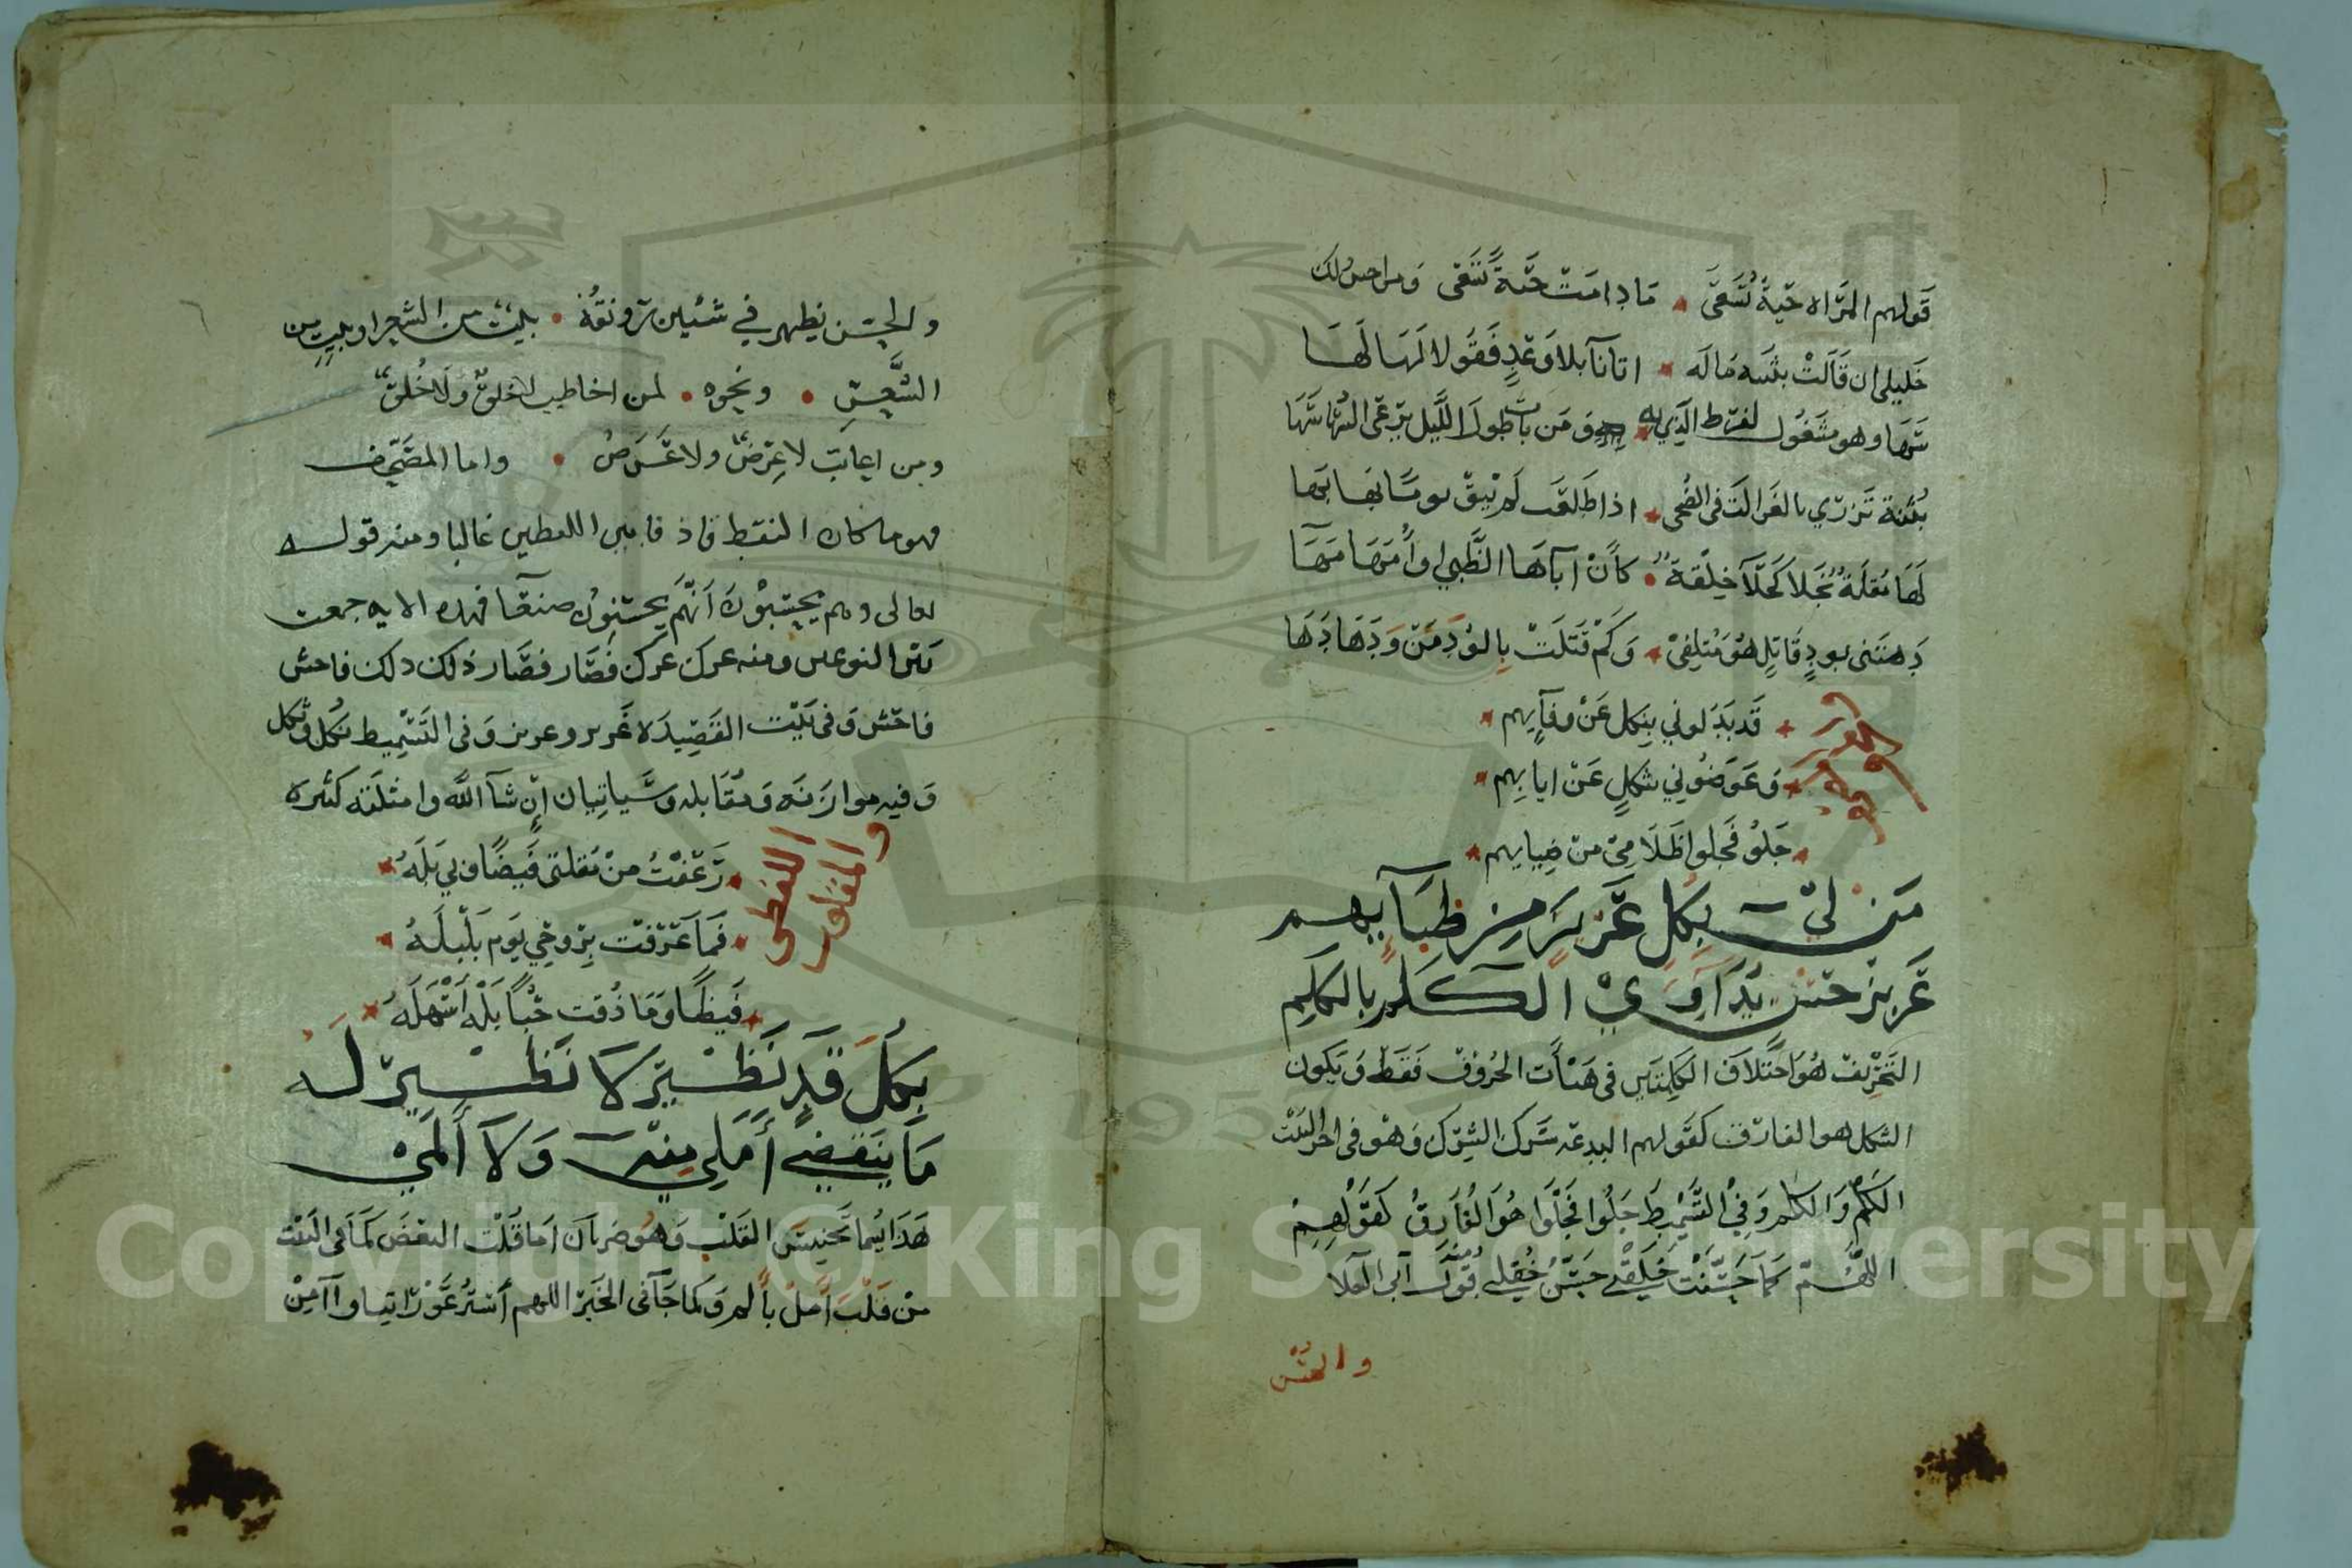 قولهم المراه حية تسعى ما دامت حية تسعى ومن احسن لك
خليلي ان قالت بثينه ماله اتانا بلا وعد فقولا لها لها
سها وهو مشغول لفرط الذي به ومن بات طول الليل يرعى السها سها
بثينة تزري بالغزالة في الضحى اذا طلعت لم تبق يوما بها بها
لها مقلة نجلا كحلا خلقة كان اباها الظبي او امها مها
دهتني بود قاتل هو متلفي وكم قتلت بالود من ودها دها
قد بدلوني بنكل عن وفايهم
وعوضوني بثكل عن ايابهم
جلو فجلوا ظلامي من ضيايهم
من لي بكل عزيز من ظبآيهم
عزيز حسن يداوي الكلم بالكلم
التحريف هو اختلاف الكلمتين في هيئات الحروف فقط ويكون
الشكل هو الفارق كقولهم البدعة شرك الشرك وهو في اخر البيت
الكلم والكلم وفي التسميط جلوا فجلوا هو الفارق كقولهم
اللهم كما حسنت خلقي حسن خلقي ومنه قول ابي العلا
والحسن
والحسن يظهر في شيئين رونقه بيت من الشعر او بيت من
الشعر ونحوه لمن اخاطب لا خلق ولا خلق
ومن اعاتب لا عرض ولا عرض واما المصحف
فهو ما كان النقط فاذ فا بين اللفظين غالبا ومنه قوله
تعالى وهم يحسبون انهم يحسنون صنعا فهذه الايه جمعت
بين النوعين ومنه عرك عزك فصار قصار ذلك ذلك فاحش
فاحش وفي بيت القصيدة غرير وعزيز وفي التسميط بنكل وثكل
وفيه موازنه ومقابله وسياتيان ان شآ الله وامثلته كثيره
واللفظي
والمقلوب
رعفت من مقلتي فيضا وبي بله
فما عرفت بروحي يوم بلبله
فيظا وما ذقت حبا بله اسهله
بكل قد نضير لا نظير له
ما ينقضي أملي منه ولا ألمي
هذا يسما تجنيس القلب وهو ضربان اما قلب البعض كما في البيت
من قلب أمل بألم وكما جآ في الخبر اللهم أستر عوراتنا وآمن